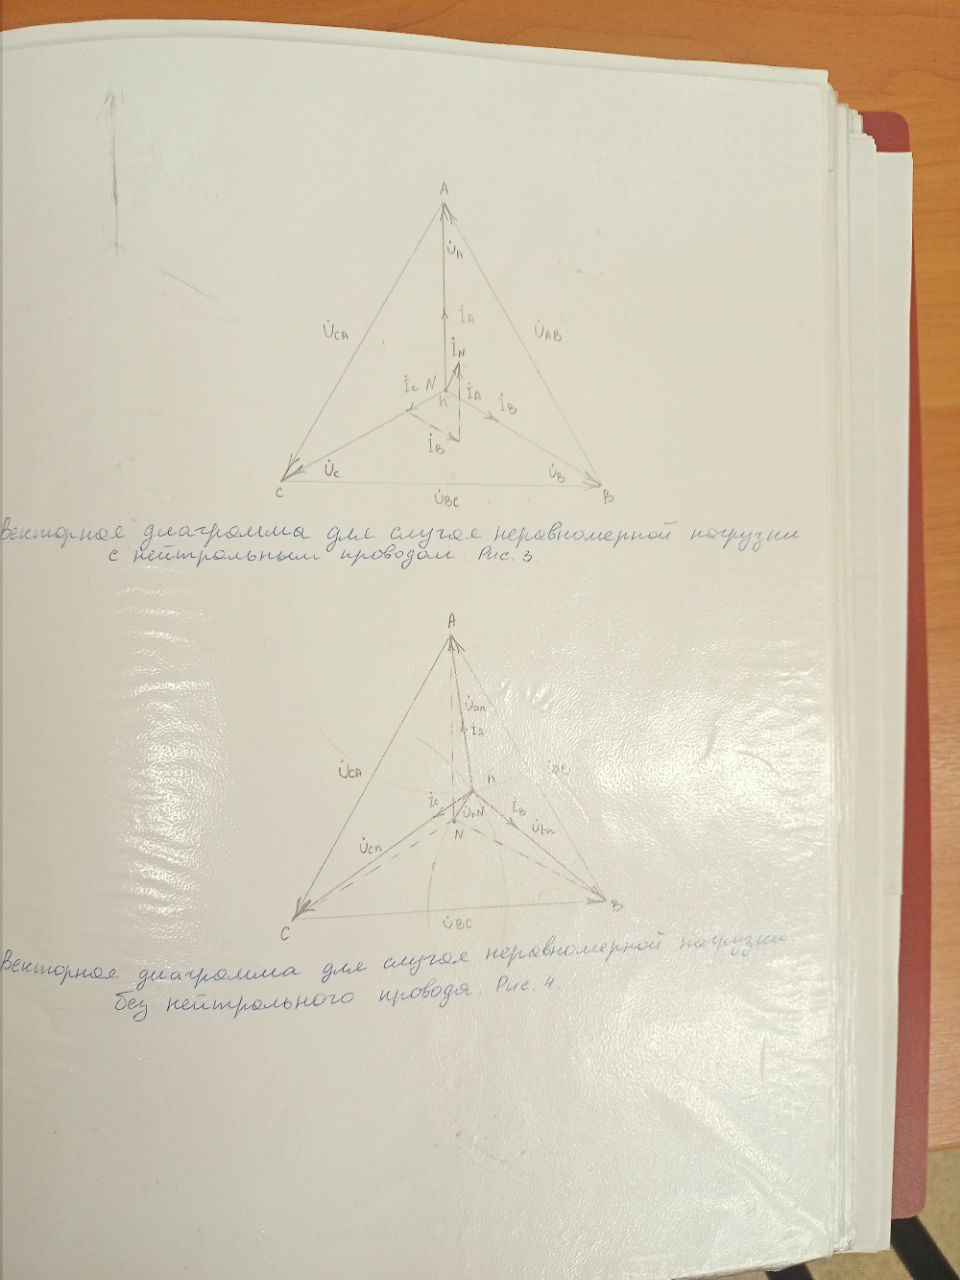 A
U̇A
İA
U̇CA
U̇AB
İN
İC N
n
İA
İB
İB
U̇C
U̇B
C
U̇BC
B
Векторная диаграмма для случая неравномерной нагрузки
с нейтральным проводом. Рис. 3
A
U̇an
İA
U̇CA
U̇AB
n
İC
U̇nN
İB
N
U̇bn
U̇cn
B
C
U̇BC
Векторная диаграмма для случая неравномерной нагрузки
без нейтрального провода. Рис. 4.